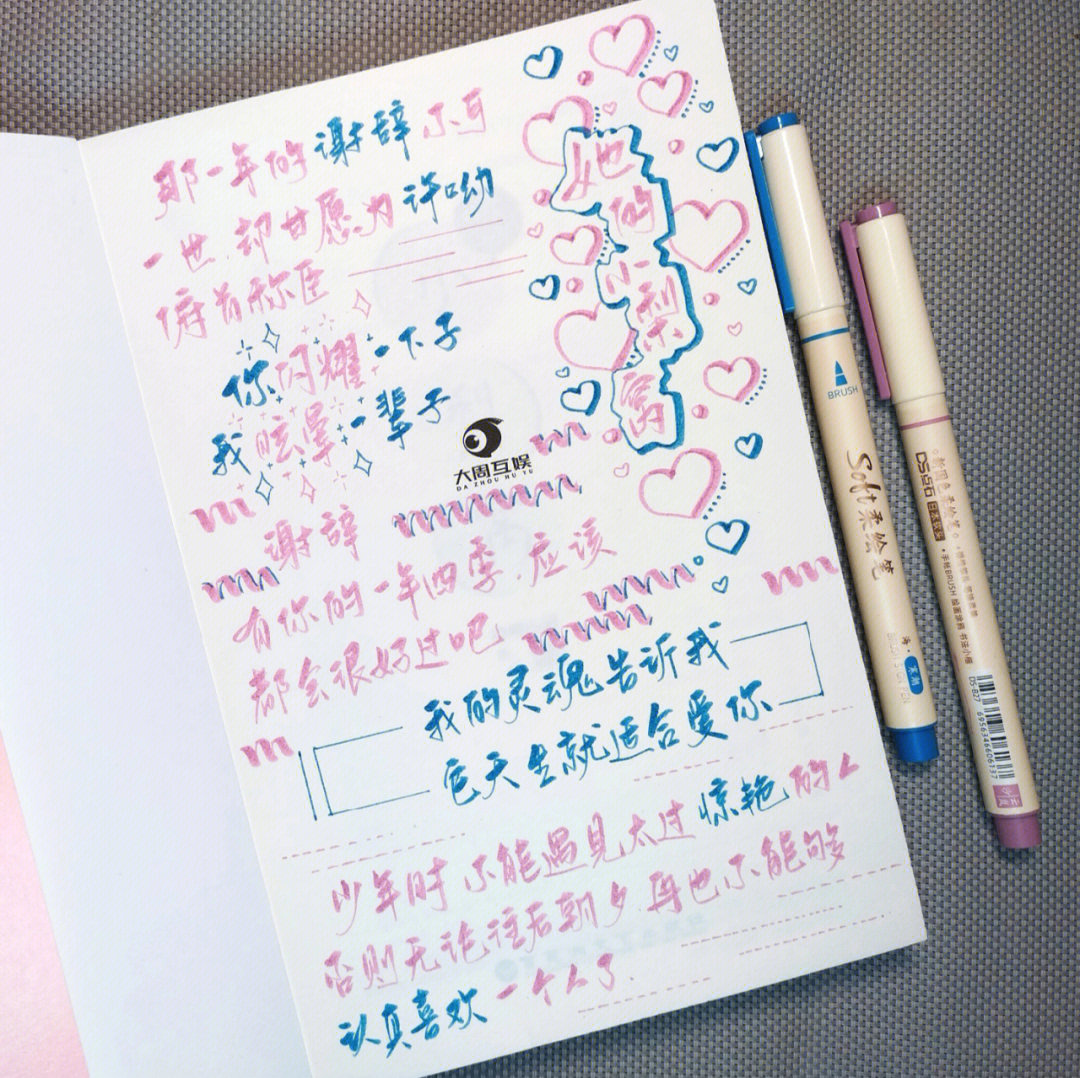 她的小梨窝
那一年的谢辞不可
一世、却甘愿为许呦
俯首称臣
你闪耀一下子
我眩晕一辈子
大周互娱
DA ZHOU HU YU
谢辞
有你的一年四季,应该
都会很好过吧
我的灵魂告诉我
它天生就适合爱你
少年时不能遇见太过惊艳的人
否则无论往后朝夕,再也不能够
认真喜欢一个人了.
BRUSH
Soft柔绘笔
BRUSH SIGN PEN
DS点石
DS-827
6956346606137